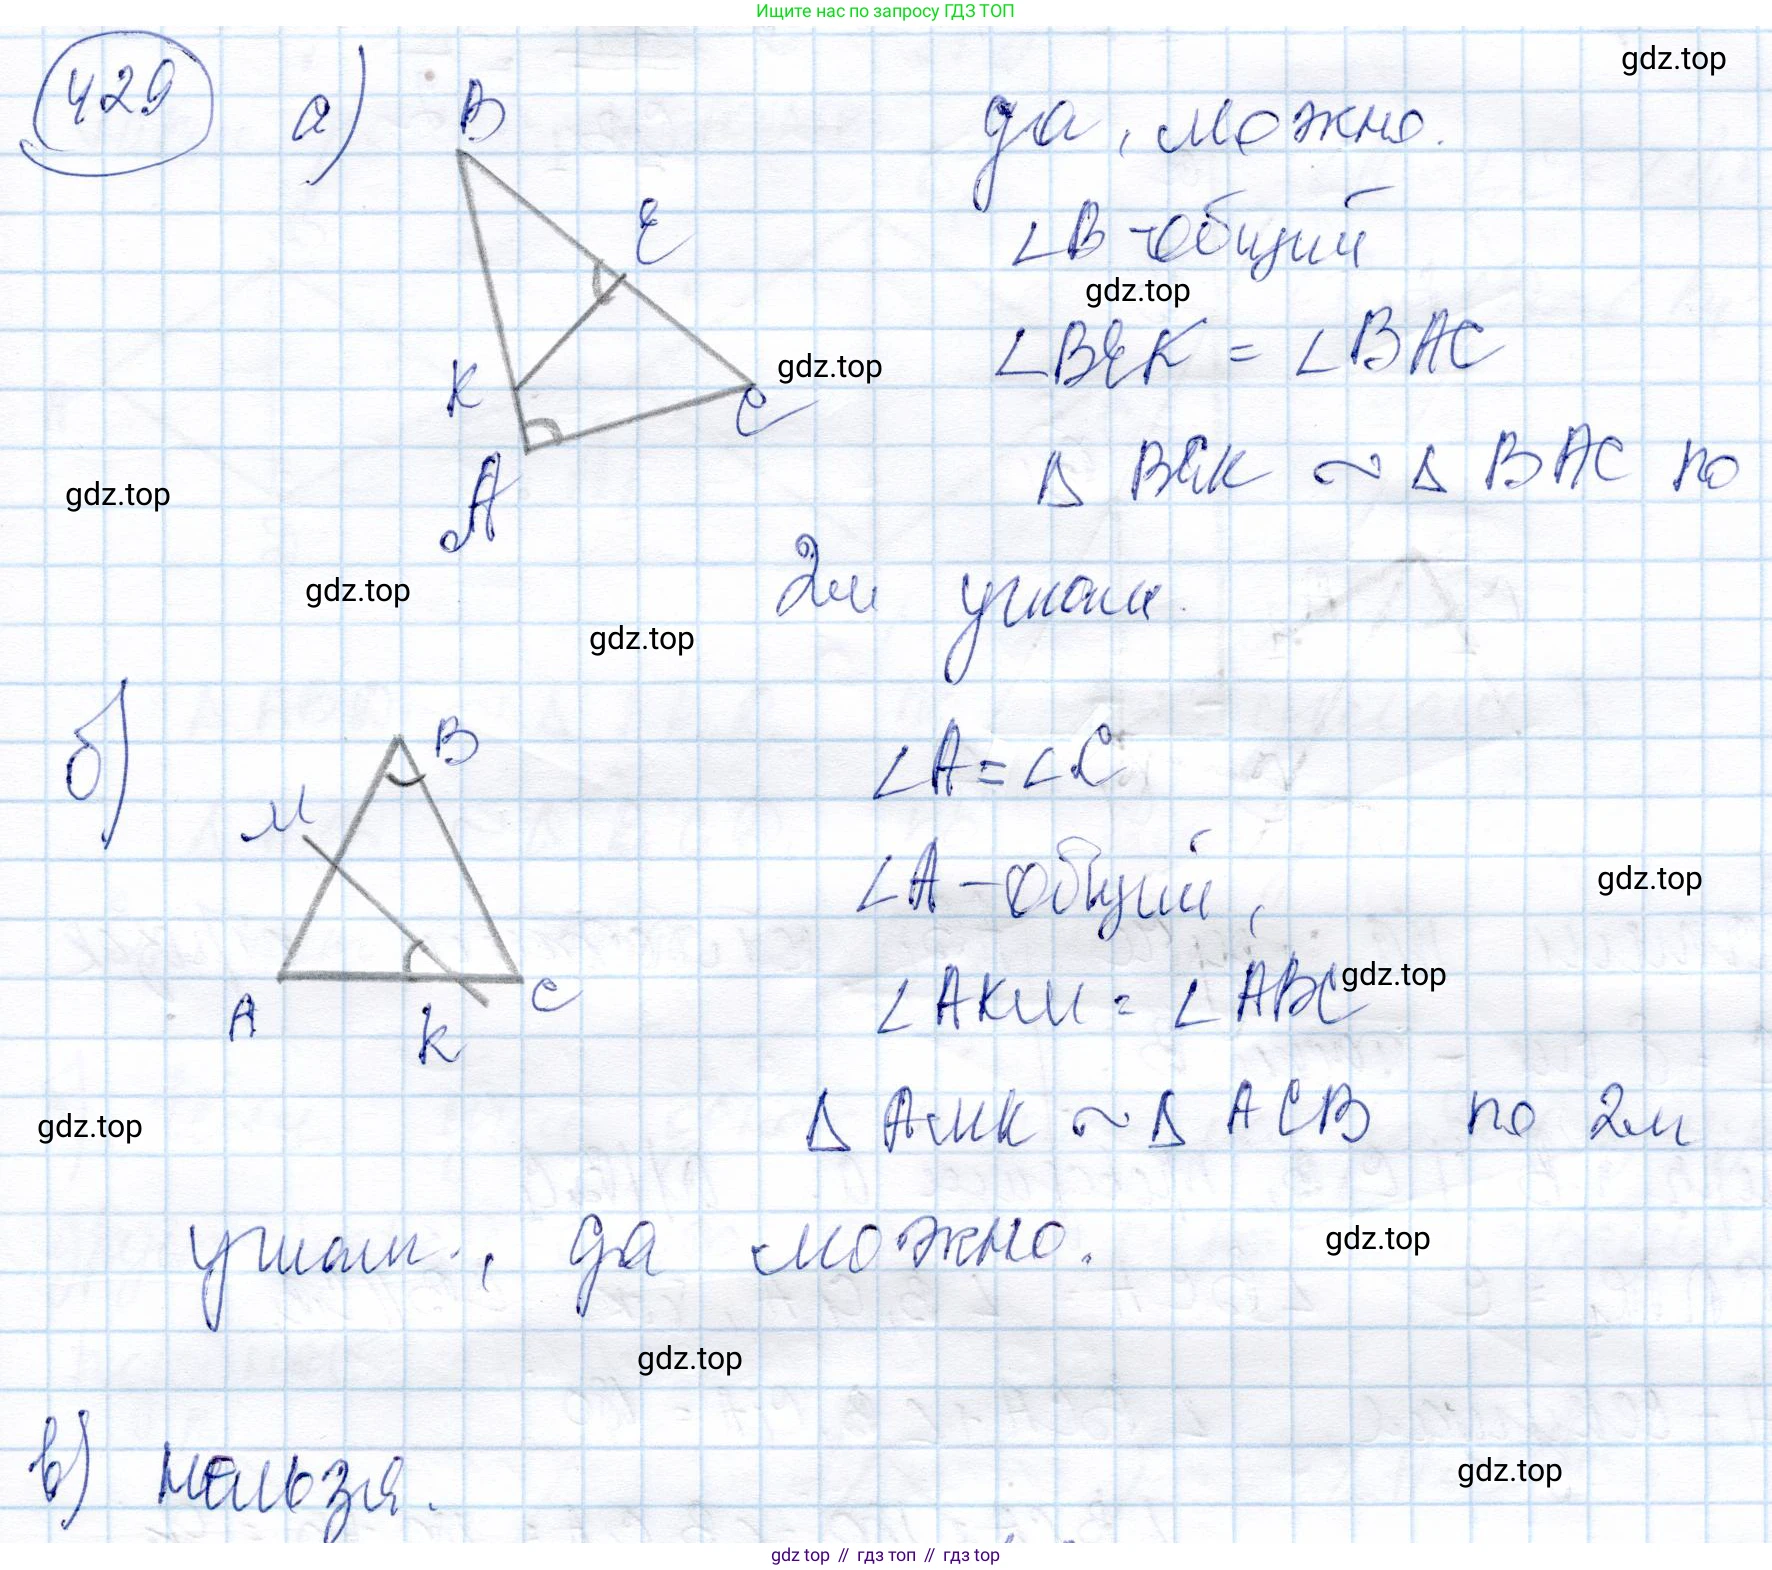 Ищите нас по запросу ГДЗ ТОП
429 а) B да, можно.
gdz.top
E ∠B - общий
gdz.top
K ∠BEK = ∠BAC
gdz.top
C
A △ BEK ~ △ BAC по
gdz.top
2м углам.
gdz.top
gdz.top
б) B ∠A = ∠C
M ∠A - общий,
gdz.top
A K C ∠AKM = ∠ABC
gdz.top
△ AMK ~ △ ACB по 2м
gdz.top
углам., да можно.
gdz.top
gdz.top
в) нельзя.
gdz.top
gdz top // гдз топ // гдз top